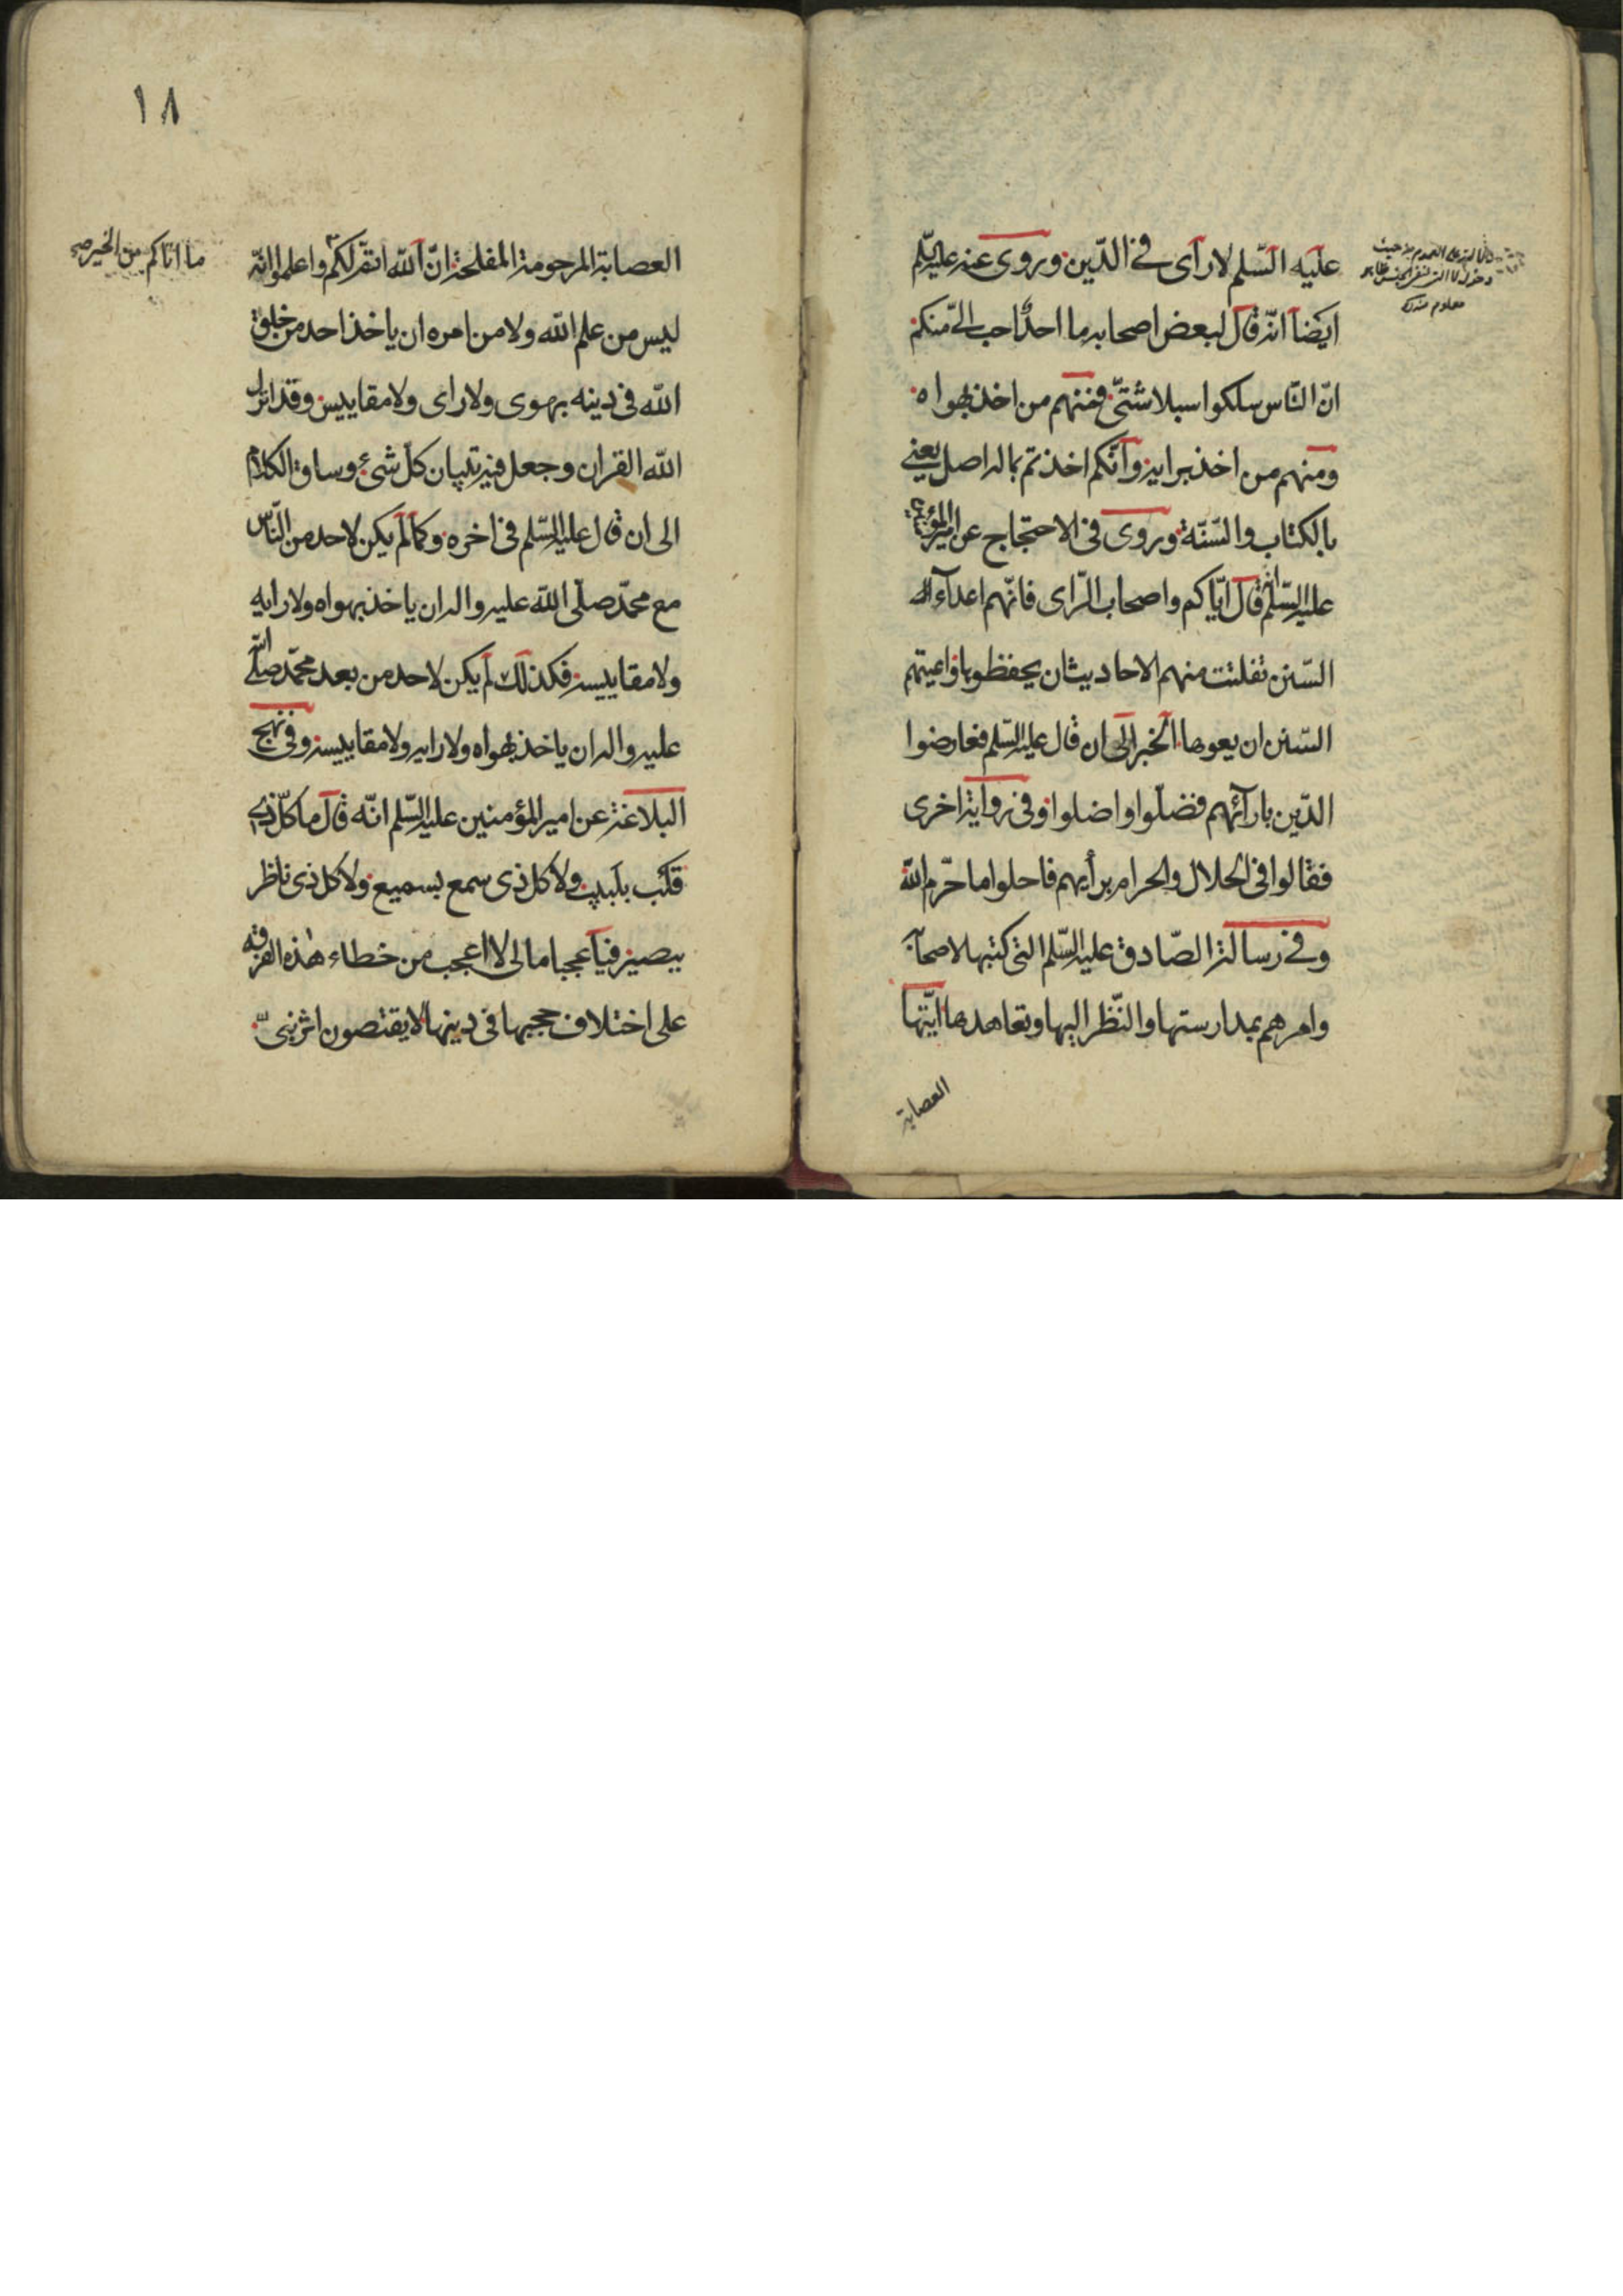 عليه السّلم لا رآى فى الدّين وروى عنه عليه السّلم
ايضا انّه قال لبعض اصحابه ما احدٌ احب الىّ منكم
انّ النّاس سلكوا سبلا شتّى فمنهم من اخذ بهواه
ومنهم من اخذ برايه وانّكم اخذتم بما له اصل يعنى
بالكتاب والسّنّة وروى فى الاحتجاج عن امير المؤمنين
عليه السّلم انّه قال ايّاكم واصحاب الرّاى فانّهم اعداء
السّنن تفلتت منهم الاحاديث ان يحفظوها واعيتهم
السّنن ان يعوها الخبر الى ان قال عليه السّلم فعارضوا
الدّين بارآئهم فضلّوا واضلوا وفى رواية اخرى
فقالوا فى الحلال والحرام برأيهم فاحلوا ما حرّم الله
وفى رسالة الصّادق عليه السّلم التى كتبها لاصحابه
وامرهم بمدارستها والنّظر اليها وتعاهدها ايّتها
العصابة
معلوم
١٨
العصابة المرحومة المفلحة انّ الله اتمّ لكم واعلموا انّه
ما اتاكم من الخير صح
ليس من علم الله ولا من امره ان ياخذ احد من خلق
الله فى دينه بهوى ولا راى ولا مقاييس وقد انزل
الله القران وجعل فيه تبيان كلّ شىء وساق الكلام
الى ان قال عليه السّلم فى اخره وكما لم يكن لاحد من النّاس
مع محمّد صلّى الله عليه واله ان ياخذ بهواه ولا رايه
ولا مقاييسه فكذلك لم يكن لاحد من بعد محمّد صلّى الله
عليه واله ان ياخذ بهواه ولا رايه ولا مقاييسه وفى نهج
البلاغة عن امير المؤمنين عليه السّلم انّه قال ما كلّ ذى
قلب بلبيب ولا كل ذى سمع بسميع ولا كل ذى ناظر
ببصير فيا عجبا ما لى لا اعجب من خطاء هذه الفرقه
على اختلاف حججها فى دينها لا يقتصون اثر نبىّ